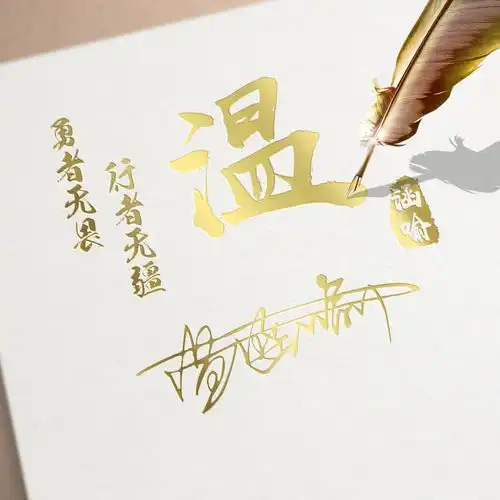 温
涵喻
行者无疆
勇者无畏